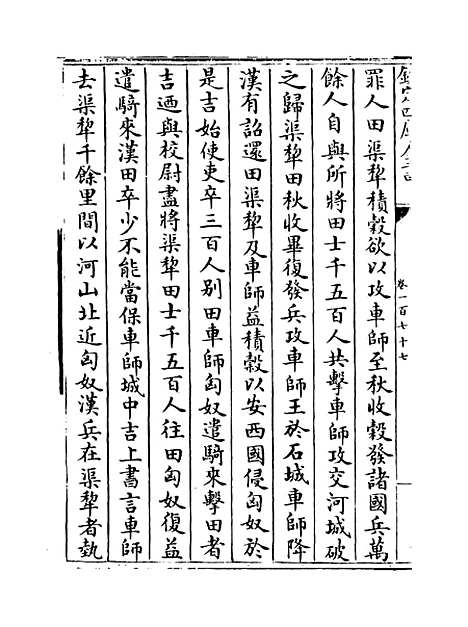 欽定四庫全書
卷一百七十七
罪人田渠犂積穀欲以攻車師至秋收穀發諸國兵萬
餘人自與所將田士千五百人共擊車師攻交河城破
之歸渠犂田秋收畢復發兵攻車師王於石城車師降
漢有詔還田渠犂及車師益積穀以安西國侵匈奴於
是吉始使吏卒三百人别田車師匈奴遣騎來擊田者
吉廼與校尉盡將渠犂田士千五百人往田匈奴復益
遣騎來漢田卒少不能當保車師城中吉上書言車師
去渠犂千餘里間以河山北近匈奴漢兵在渠犂者埶